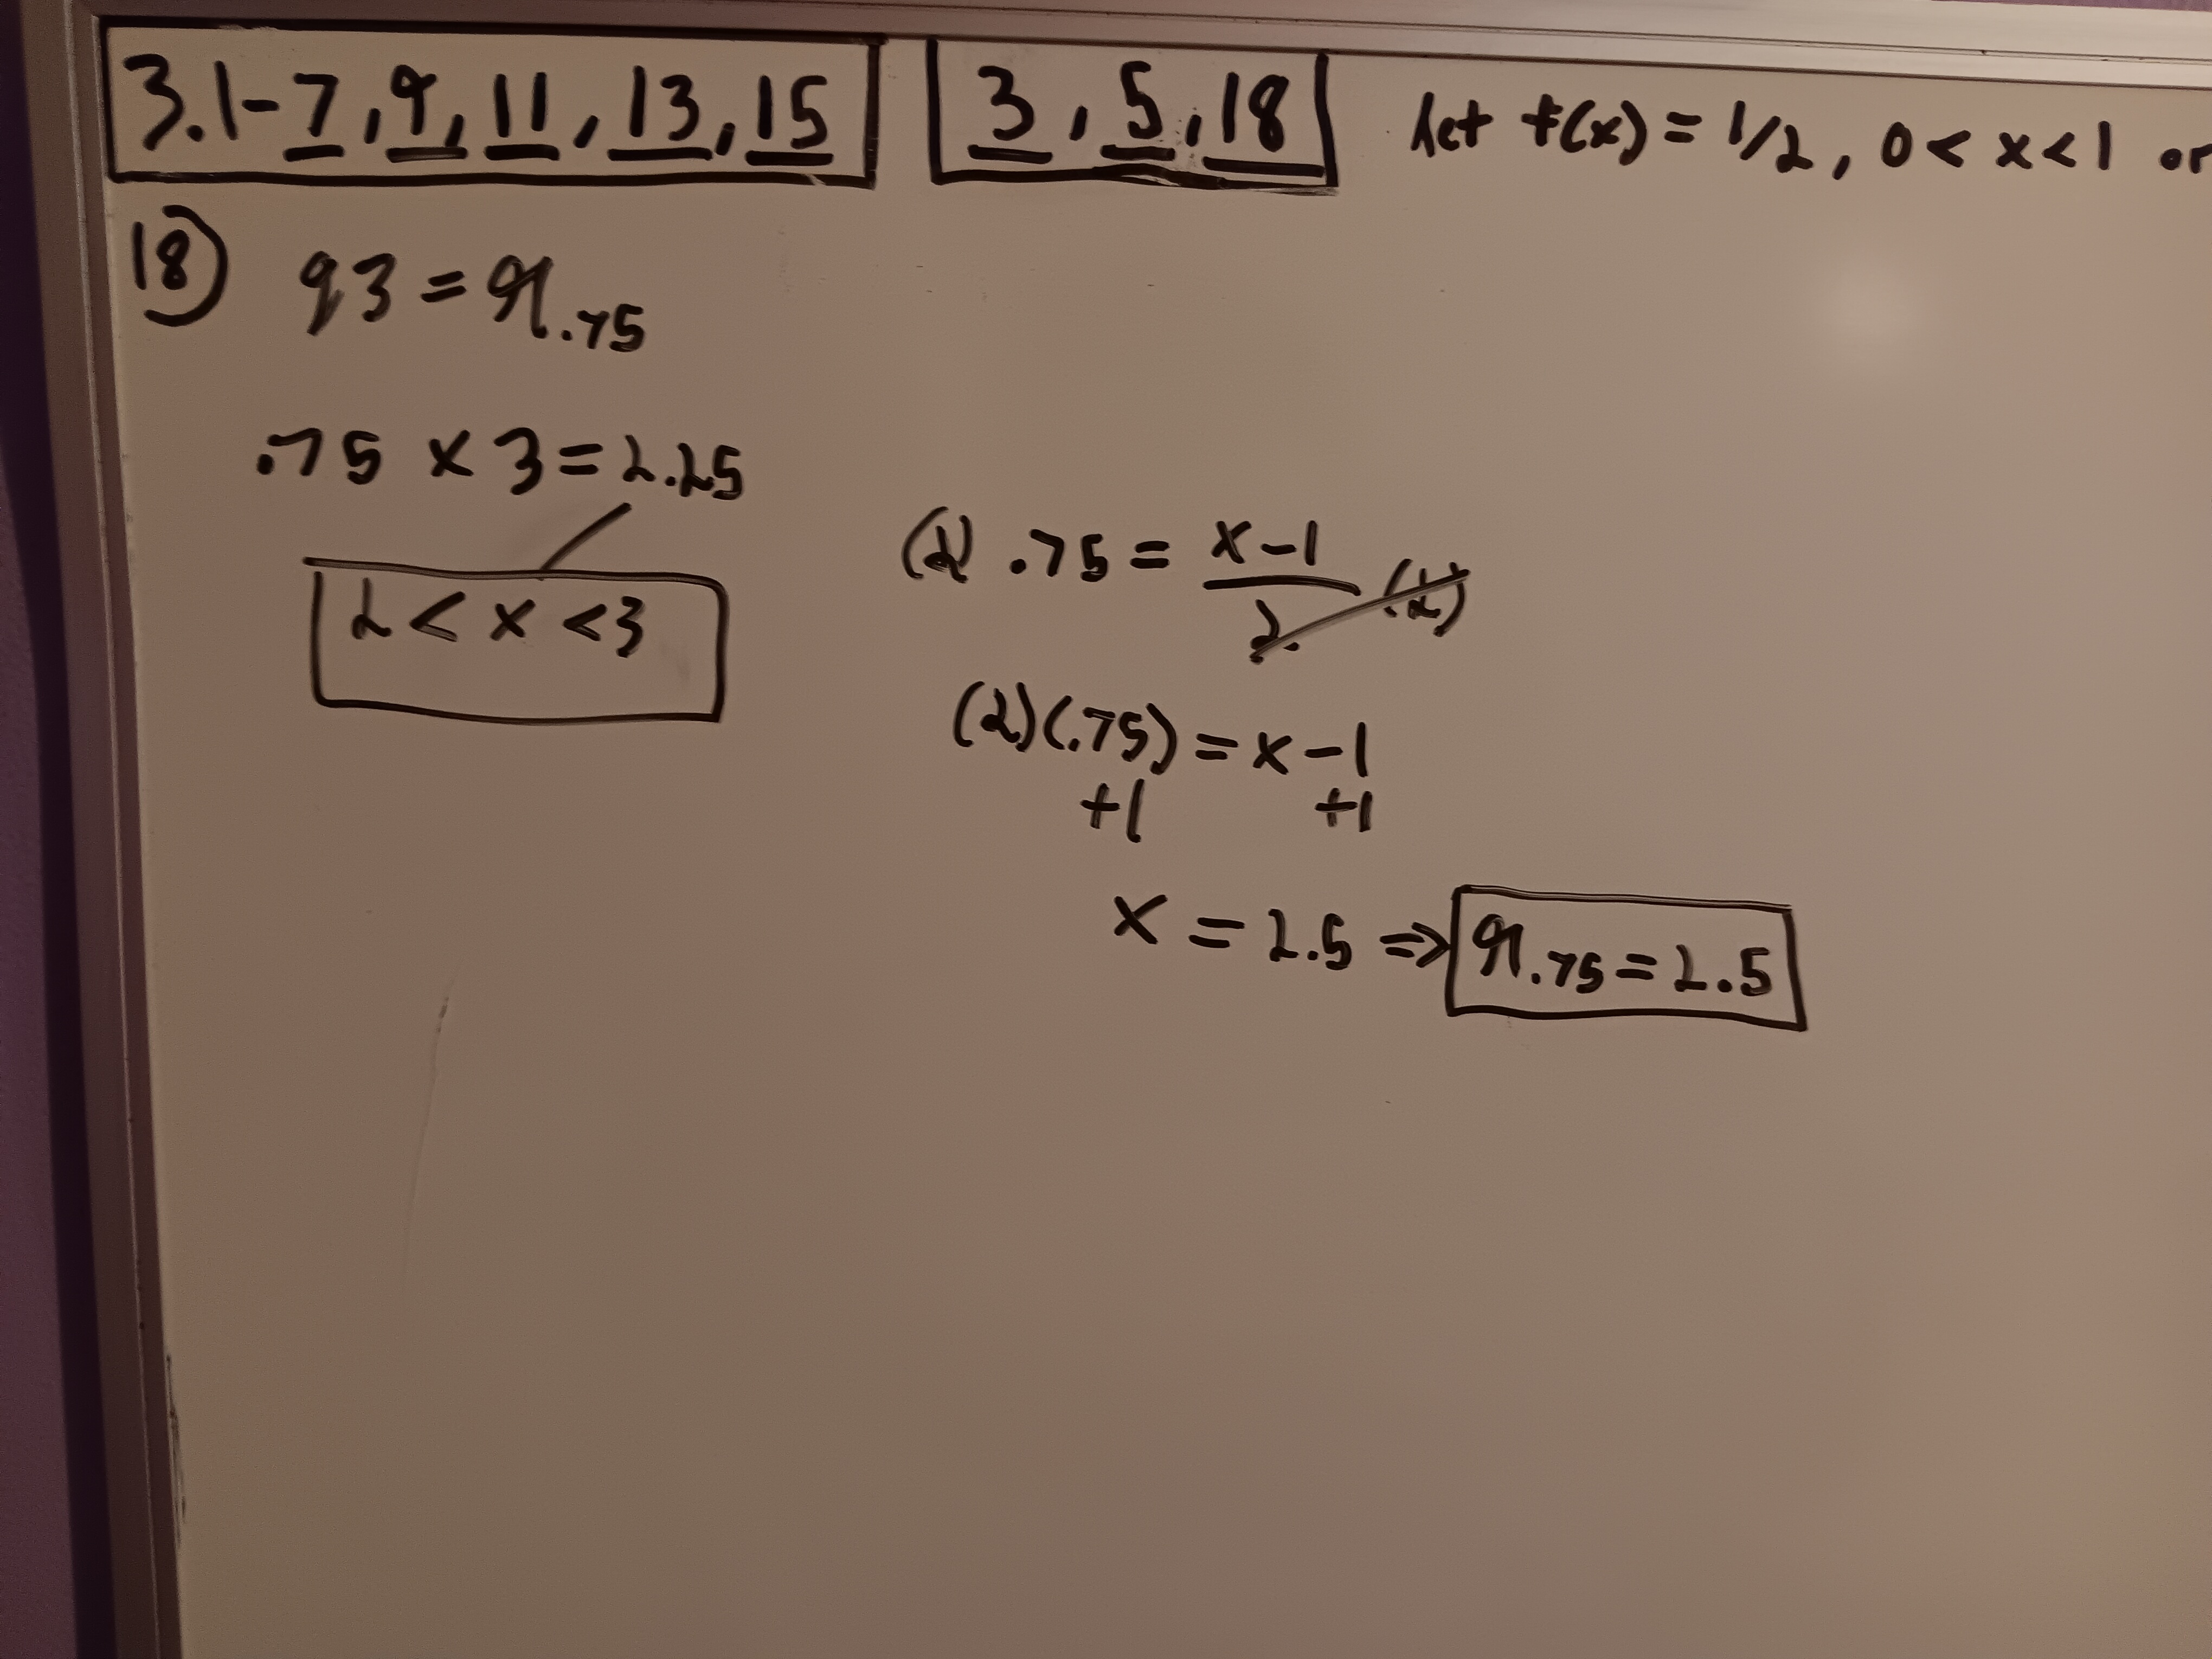 3.1-7, 9, 11, 13, 15
3, 5, 18
let f(x) = 1/2, 0 < x < 1 or
18) q3 = π.75
.75 x 3 = 2.25
2 < x < 3
(2) .75 = x-1/2 (2)
(2)(.75) = x-1
+1 +1
x = 2.5 => π.75 = 2.5